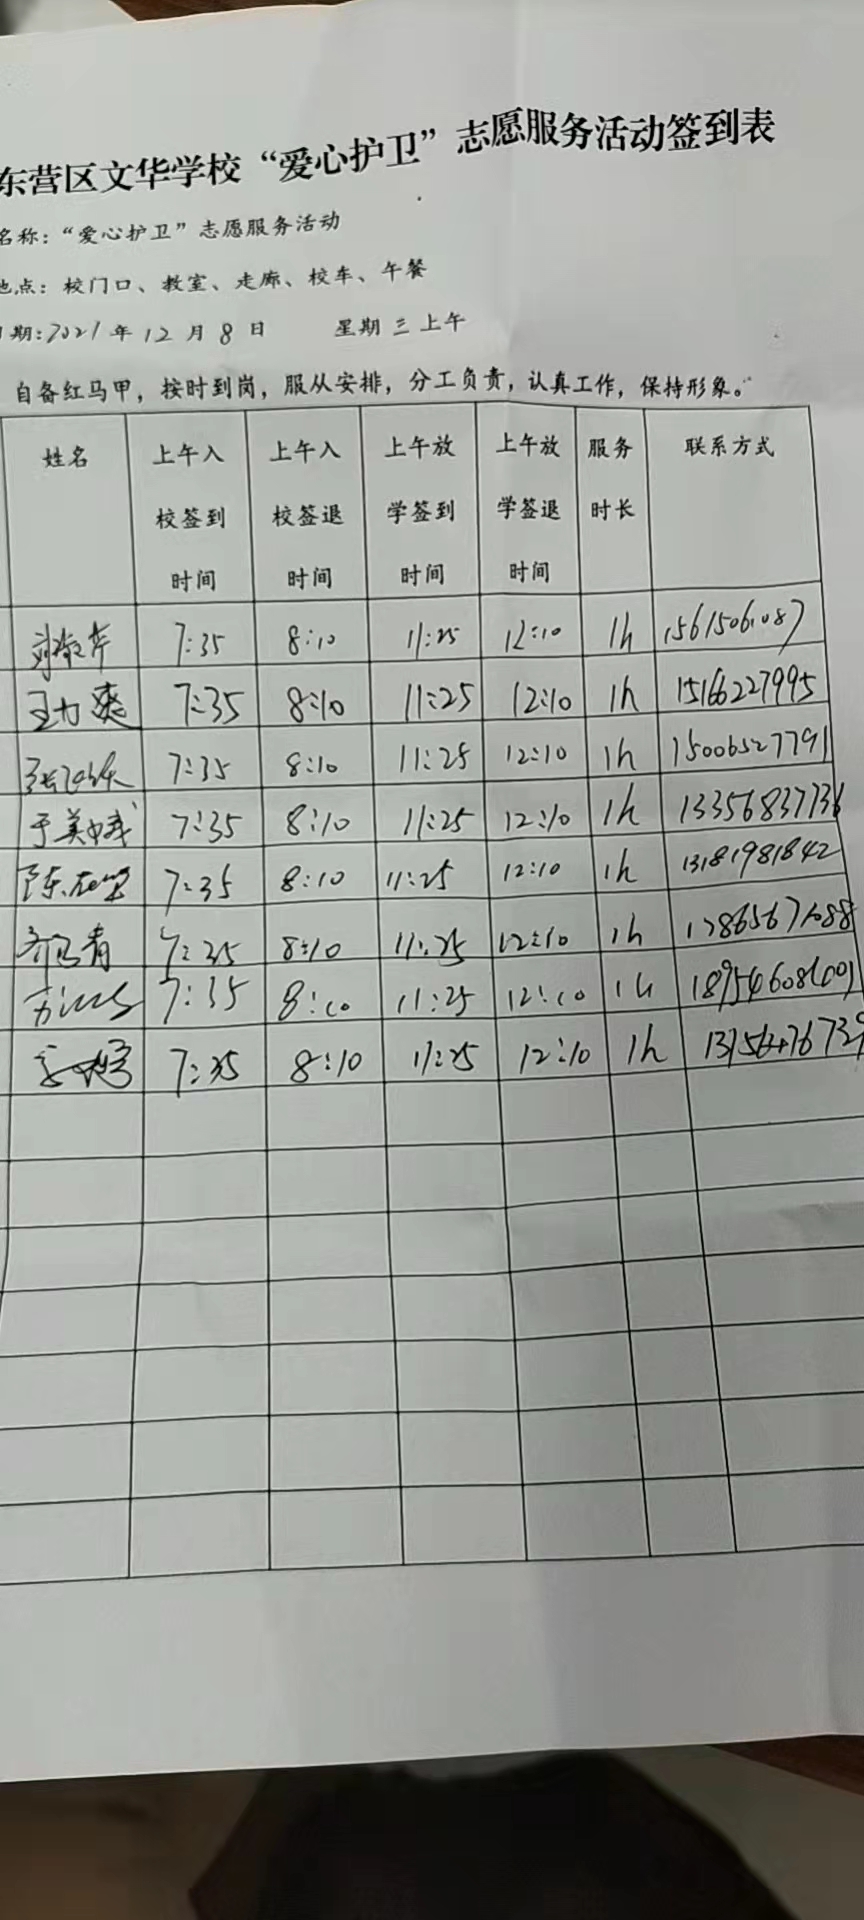 东营区文华学校“爱心护卫”志愿服务活动签到表
名称：“爱心护卫”志愿服务活动
地点：校门口、教室、走廊、校车、午餐
日期：2021年12月8日 星期三上午
自备红马甲，按时到岗，服从安排，分工负责，认真工作，保持形象。
姓名 上午入校签到时间 上午入校签退时间 上午放学签到时间 上午放学签退时间 服务时长 联系方式
7:35 8:10 11:25 12:10 1h 15615061087
王力爽 7:35 8:10 11:25 12:10 1h 15166227995
7:35 8:10 11:25 12:10 1h 15006527791
于美娥 7:35 8:10 11:25 12:10 1h 13356837736
7:35 8:10 11:25 12:10 1h 13181981842
7:35 8:10 11:25 12:10 1h
7:35 8:10 11:25 12:10 1h
7:35 8:10 11:25 12:10 1h